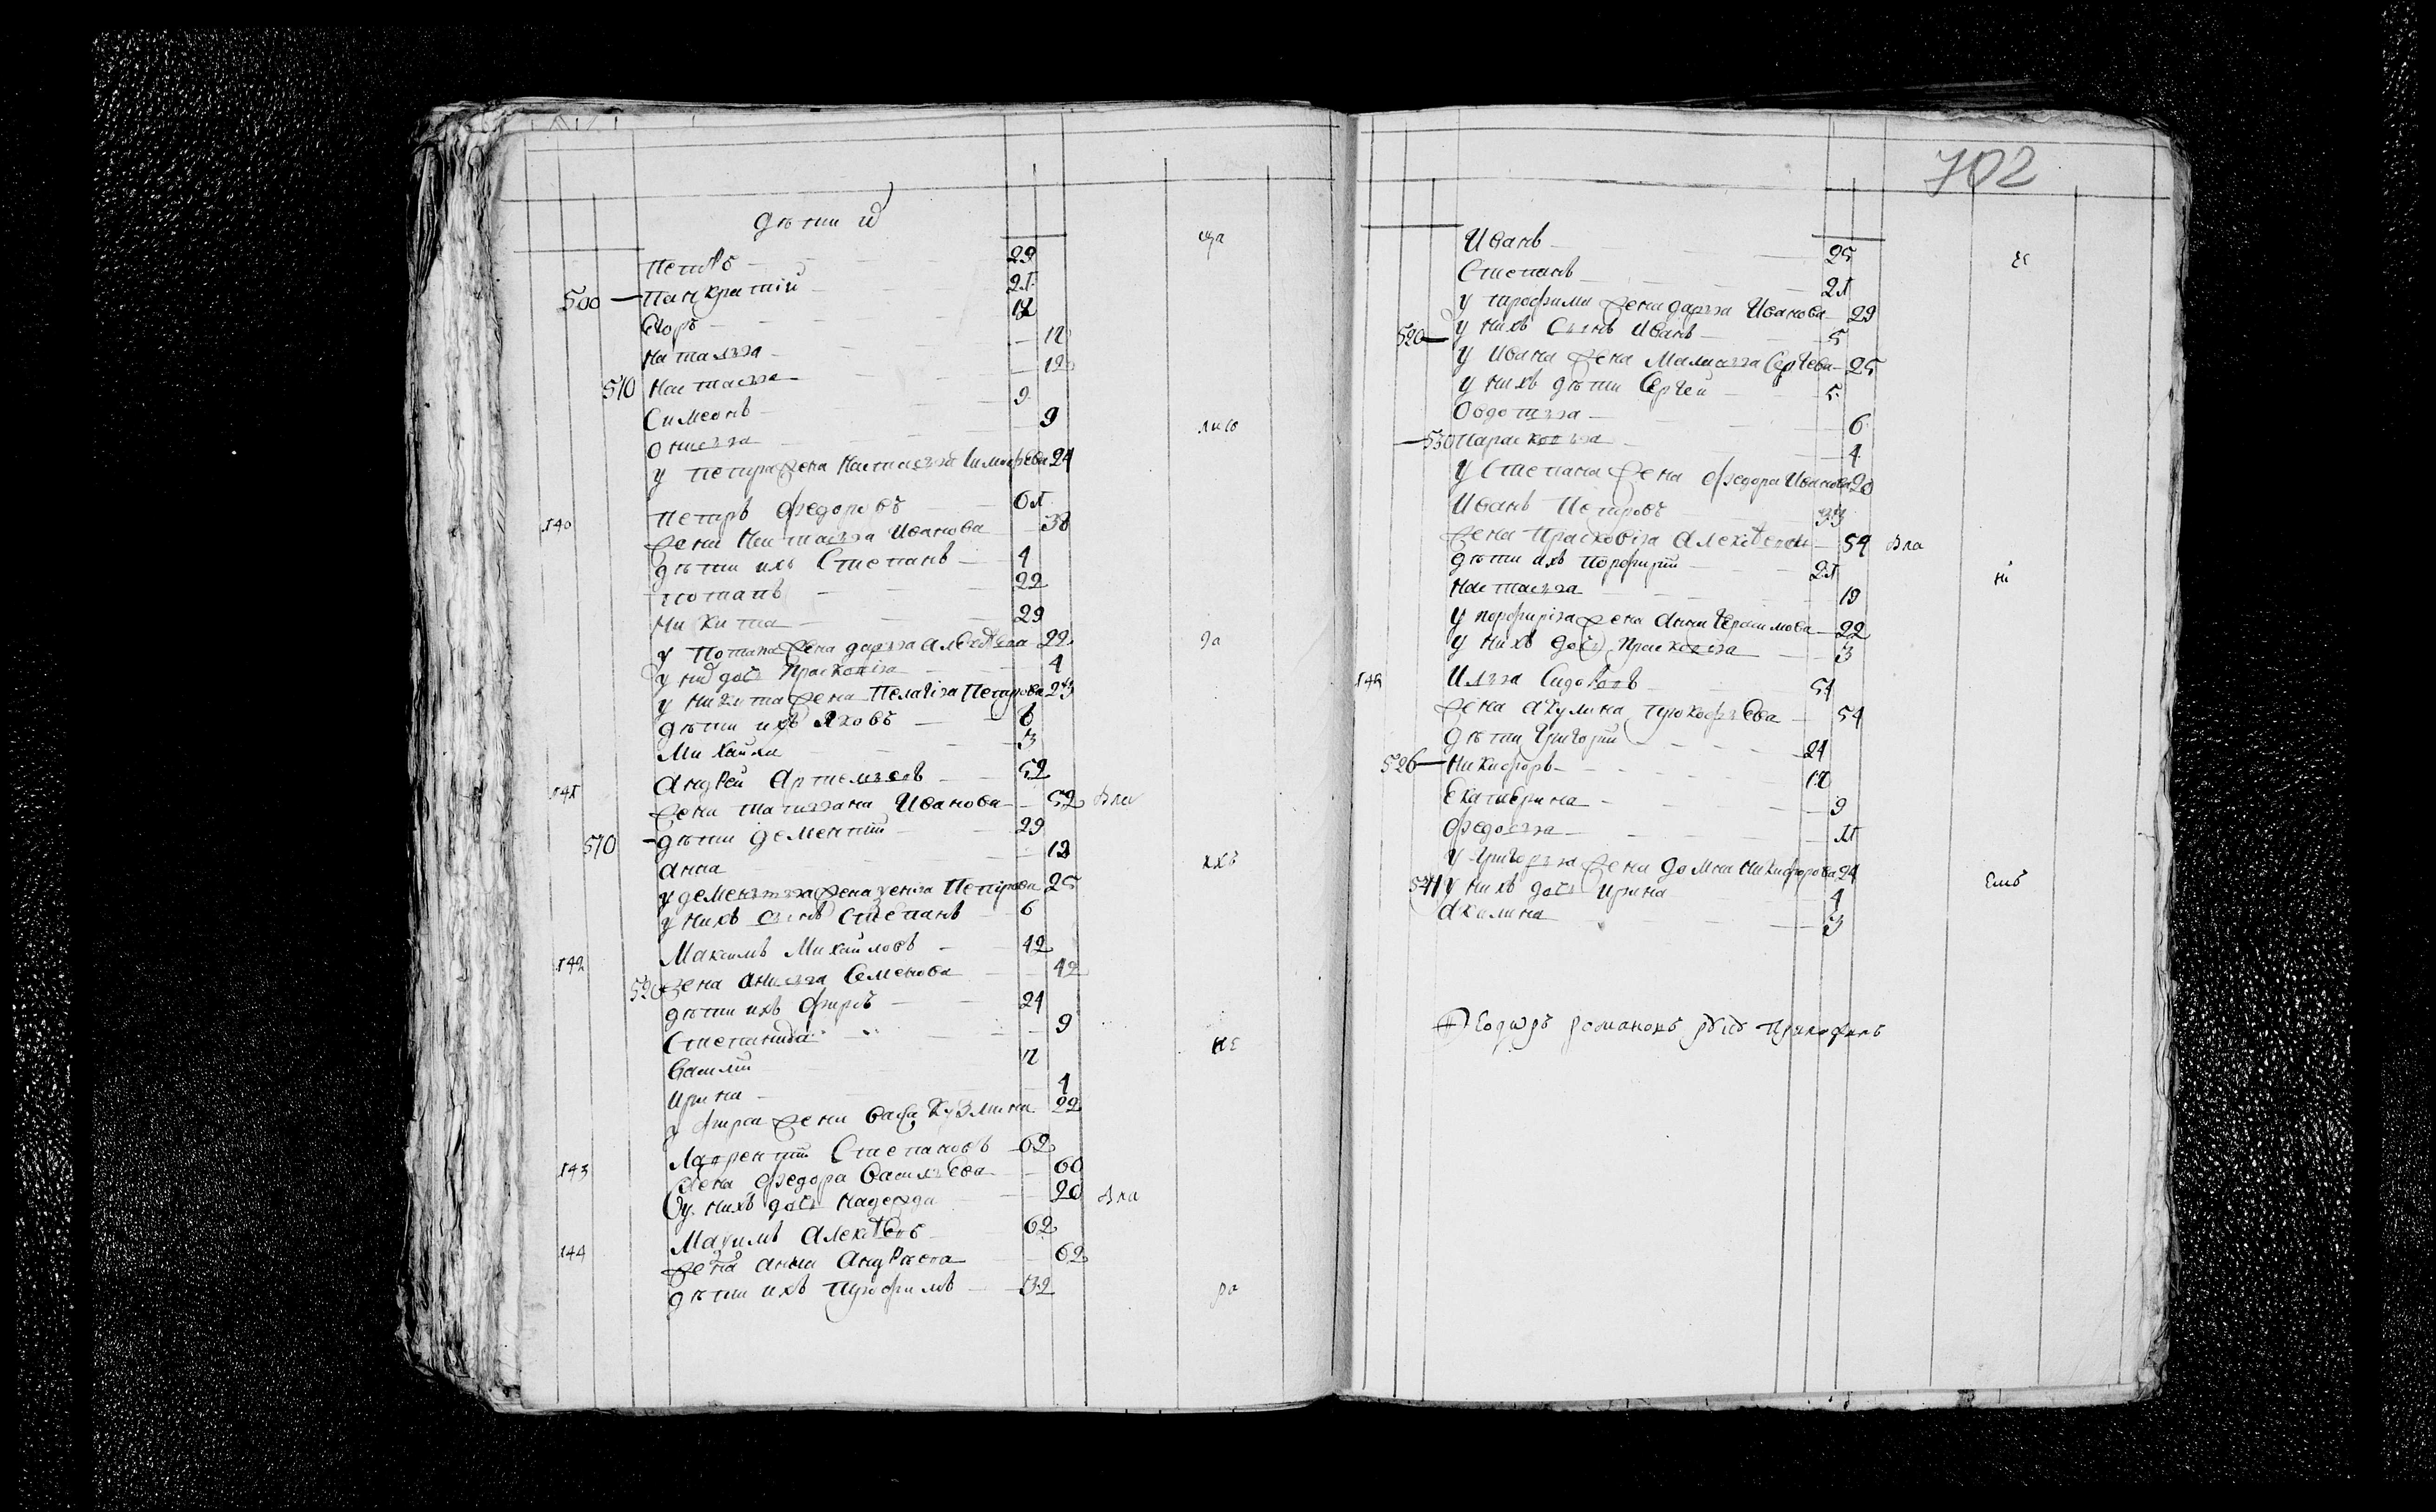 дѣти их
Петръ 29
500 Панкратій 21
Егоръ 12
Наталья 12
510 Настасья 12
Симеонъ 9
Онисья 9
у Петра жена Настасья 24
140 Петръ Федоровъ
жена Настасья Иванова 38
дѣти ихъ Степанъ 4
Потапъ 22
Никита 29
у Потапа жена Дарья Алексѣева 22
у них дочь Прасковія 4
у Никиты жена Пелагія Петрова 23
дѣти ихъ Яковъ 6
Михайла 3
141 Андрей Артемьевъ 52
жена Татьяна Иванова 52
510 дѣти Дементій 29
Анна 12
у Дементья жена Петрова 25
у нихъ сынъ Степанъ 6
142 Максимъ Михайловъ 42
жена Анисья Семенова 42
дѣти ихъ Фирсъ 24
Степанида 9
Василій
Ирина 4
у Фирса жена Кузмина 22
143 Лаврентій Степановъ 62
жена Федора Васильева 60
у нихъ дочь Надежда 20
144 Алексѣевъ 62
жена Анна Андрѣева 62
дѣти ихъ Трофимъ 32
702
Иванъ 25
Степанъ 21
у Трофима жена Дарья Иванова 29
520 у нихъ сынъ Иванъ 5
у Ивана жена Сергѣева 25
у нихъ дѣти Сергѣй 5
Овдотья 6
530 Парасковья 4
у Степана жена Федора Иванова 20
Иванъ Петровъ 33
жена Прасковія Алексѣева 54
дѣти ихъ Порфирій 21
Настасья 19
у Порфирія жена Анна Герасимова 22
у нихъ дочь Прасковія 3
Илья Сидоровъ 54
жена Акулина Прокофьева 54
дѣти Григорій 24
526 Никифоръ 12
Екатерина 9
Федосья
у Григорья жена Домна Никифорова 24
у нихъ дочь Ирина 4
Акилина 3